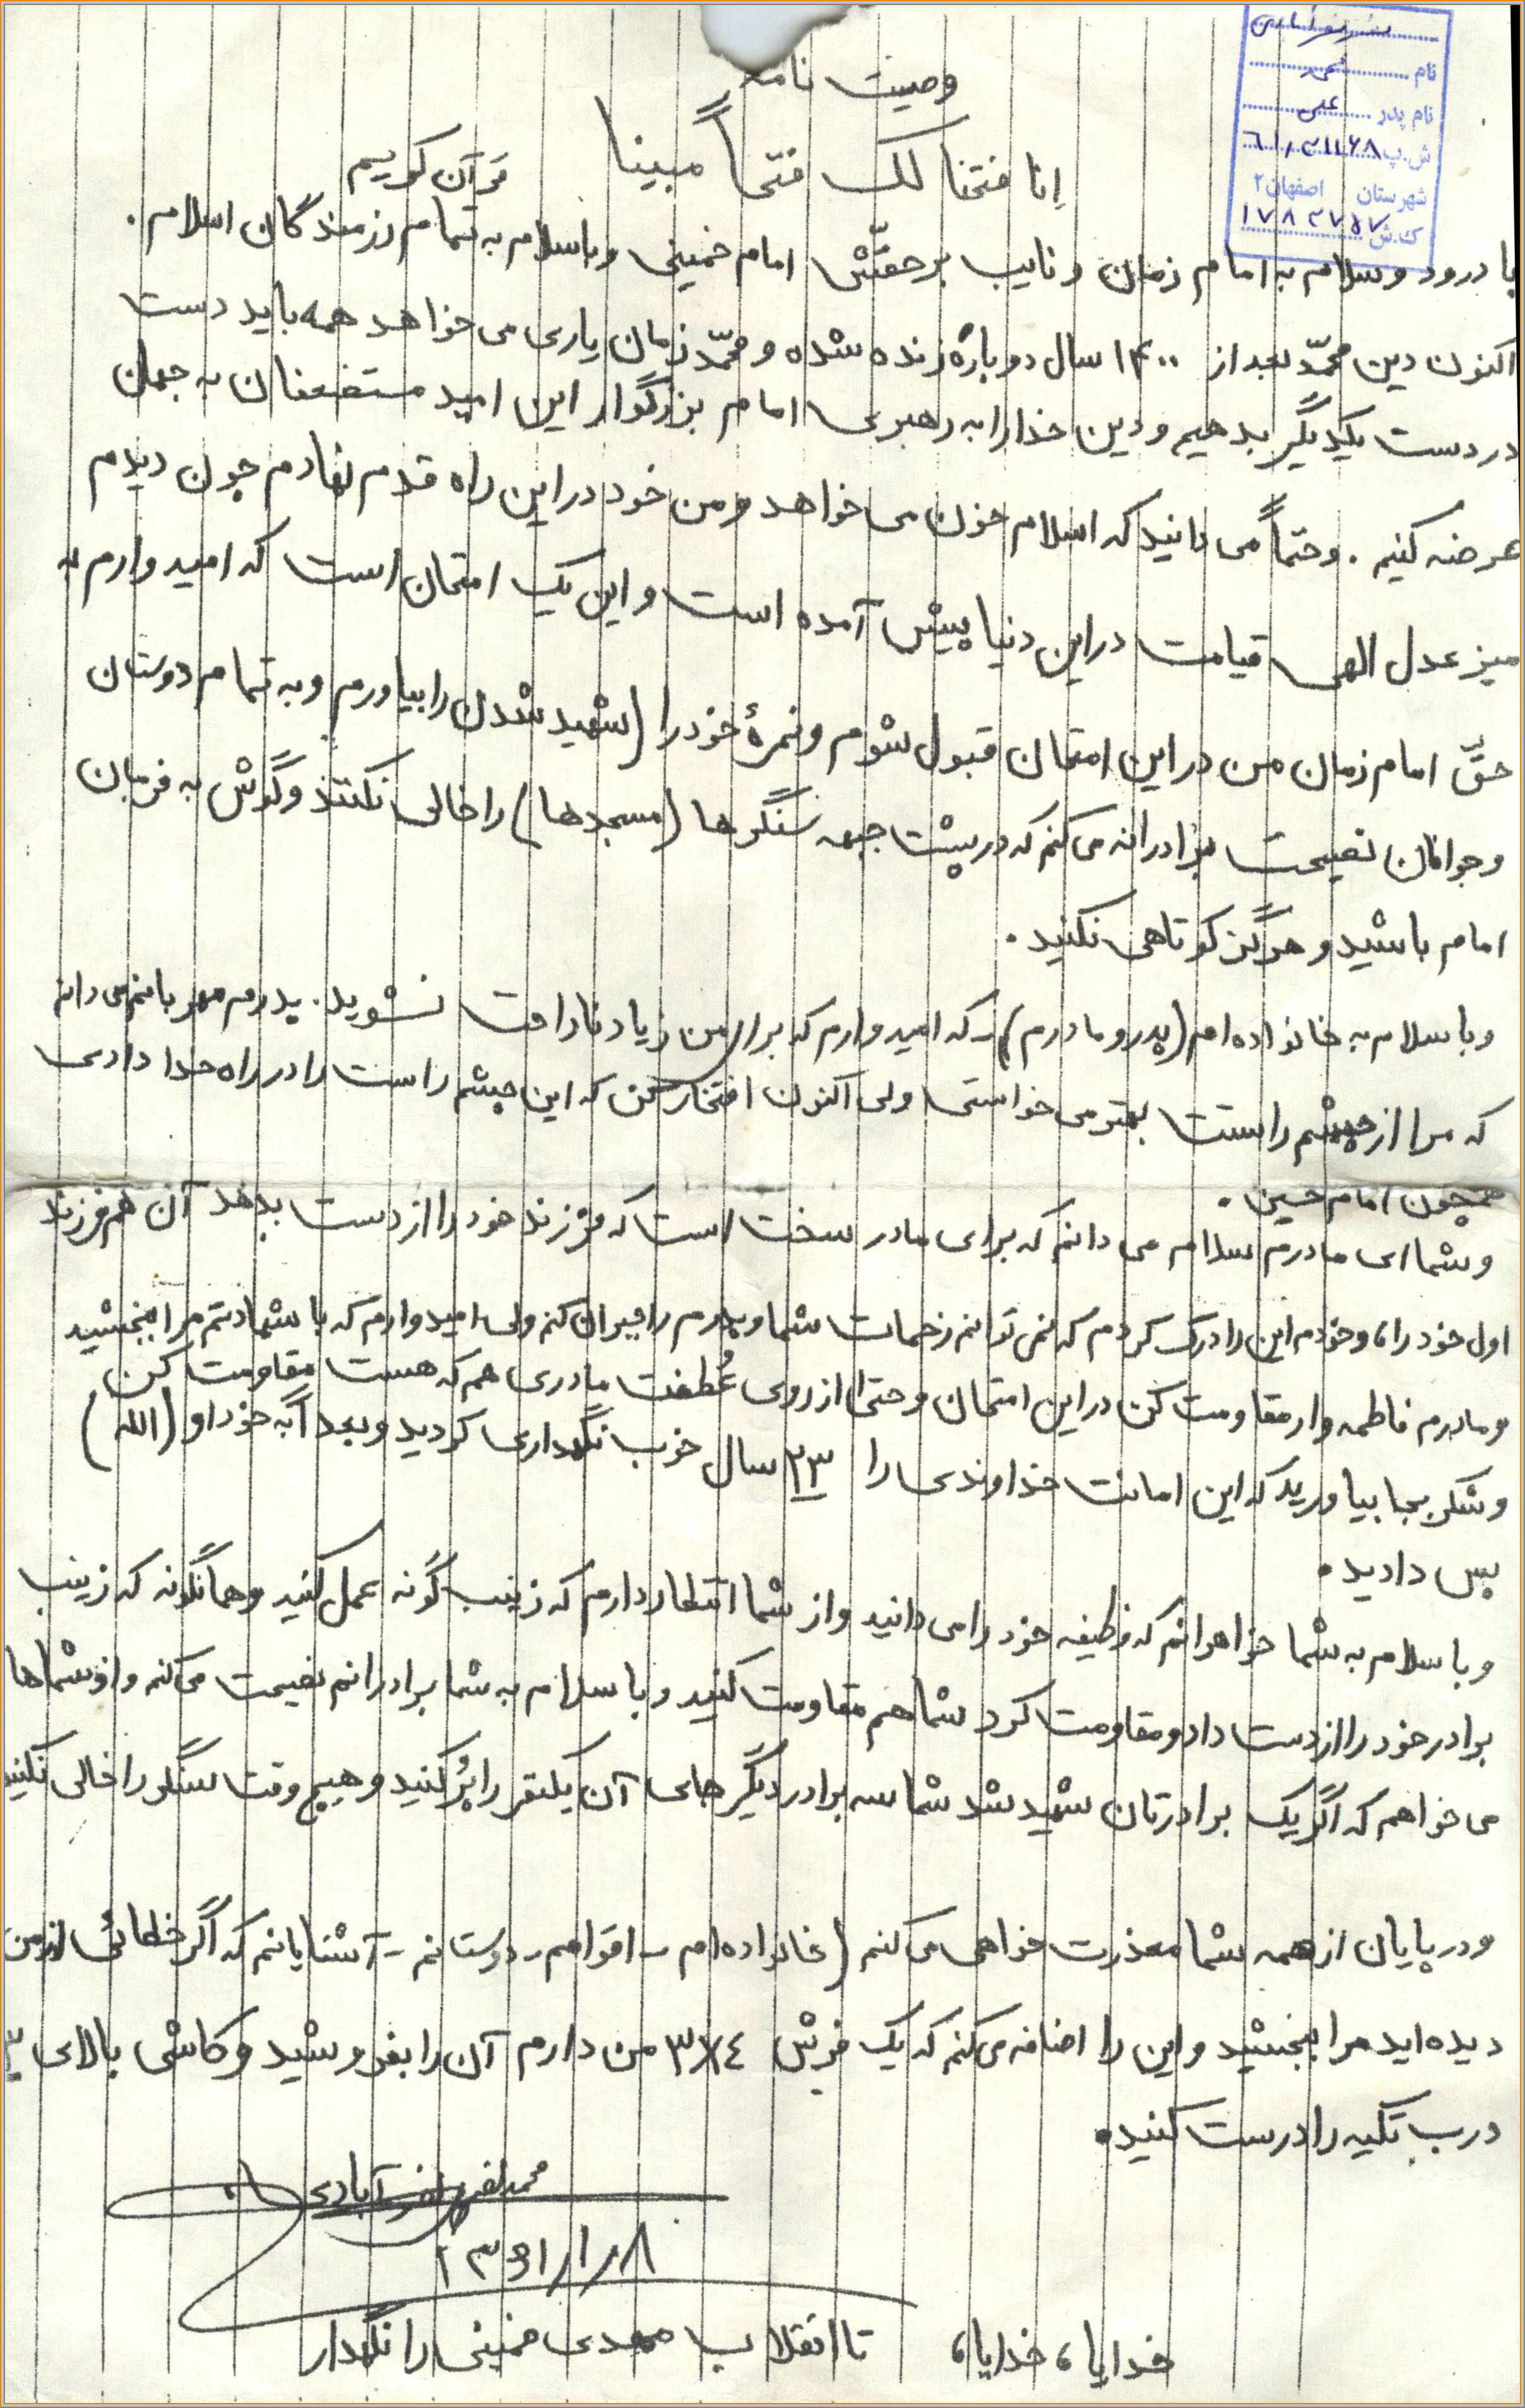 نام محمد
نام پدر علی
ش.پ ۶۱/۳۱۱۶۸
شهرستان اصفهان ۲
ک.ش ۱۷۸۳۷۵۷
وصیت نامه
اِنا فتحنا لک فتحاً مبینا
قرآن کریم
با درود و سلام به امام زمان و نایب برحقّش امام خمینی و با سلام به تمام رزمندگان اسلام.
اکنون دین محمّد بعد از ۱۴۰۰ سال دوباره زنده شده و محمّد زمان یاری می خواهد همه باید دست
در دست یکدیگر بدهیم و دین خدا را به رهبری امام بزرگوار این امید مستضعفان به جهان
عرضه کنیم. و حتماً می دانید که اسلام خون می خواهد و من خود در این راه قدم نهادم چون دیدم
میز عدل الهی قیامت در این دنیا پیش آمده است و این یک امتحان است که امیدوارم به
حقّ امام زمان من در این امتحان قبول شوم و نمرهٔ خود را (شهید شدن را بیاورم و به تمام دوستان
و جوانان نصیحت برادرانه می کنم که در پشت جبهه سنگرها (مسجدها) را خالی نکنند و گوش به فرمان
امام باشید و هرگز کوتاهی نکنید.
و با سلام به خانواده ام (پدر و مادرم) - که امیدوارم که برای من زیاد ناراحت نشوید. پدرم مهربانم می دانم
که مرا از چشم راستت بهتر می خواستی ولی اکنون افتخار کن که این چشم راست را در راه خدا دادی
همچون امام حسین.
و شما ای مادرم سلام می دانم که برای مادر سخت است که فرزند خود را از دست بدهد آن هم فرزند
اول خود را، و خودم این را درک کردم که نمی توانم زحمات شما و پدرم را جبران کنم ولی امیدوارم که با شهادتم مرا ببخشید
و مادرم فاطمه وار مقاومت کن در این امتحان و حتی از روی عُطفت مادری هم که هست مقاومت کن
و شکر بجا بیاورید که این امانت خداوندی را ۲۳ سال خوب نگهداری کردید و بعد آ به خود او (الله)
پس دادید.
و با سلام به شما خواهرانم که وظیفه خود را می دانید و از شما انتظار دارم که زینب گونه عمل کنید و همانگونه که زینب
برادر خود را از دست داد و مقاومت کرد شما هم مقاومت کنید و با سلام به شما برادرانم نصیحت می کنم و از شماها
می خواهم که اگر یک برادرتان شهید شد شما سه برادر دیگر جای آن یکنفر را پُر کنید و هیچ وقت سنگر را خالی نکنید
و در پایان از همه شما معذرت خواهی می کنم (خانواده ام - اقوامم - دوستانم - آشنایانم که اگر خطائی از من
دیده اید مرا ببخشید و این را اضافه می کنم که یک فرش ۳×۴ من دارم آن را بفروشید و کاشی بالای ۳
درب تکیه را درست کنید.
محمد نصر نصرآبادی
۱۳۶۱/۱/۸
خدایا، خدایا، تا انقلاب مهدی خمینی را نگهدار